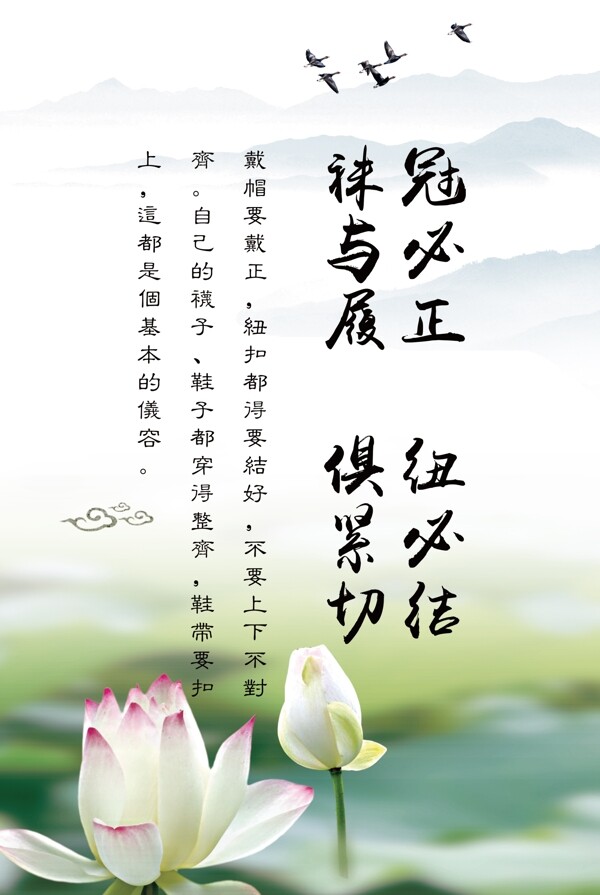 冠必正　纽必结
袜与履　俱紧切
戴帽要戴正，紐扣都得要結好，不要上下不對
齊。自己的襪子、鞋子都穿得整齊，鞋帶要扣
上，這都是個基本的儀容。